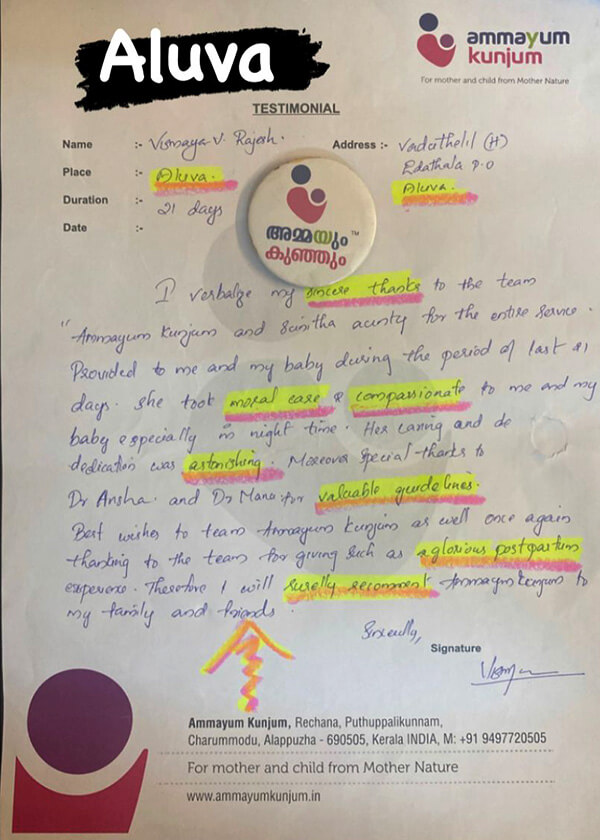 Aluva
ammayum
kunjum
For mother and child from Mother Nature
TESTIMONIAL
Name :- Vismaya V. Rajesh.
Address :- Vadathelil (H)
Edathala P.O
Aluva.
Place :- Aluva.
Duration :- 21 days
Date :-
അമ്മയും TM
കുഞ്ഞും
I verbalize my sincere thanks to the team
"Ammayum Kunjum and Sunitha aunty for the entire service.
Provided to me and my baby during the period of last 21
days. She took moral care & compassionate to me and my
baby especially in night time. Her caring and de
dedication was astonishing. Moreover special thanks to
Dr Ansha. and Dr Mana for valuable guidelines.
Best wishes to team Ammayum Kunjum as well once again
thanking to the team for giving such as a glorious postpartum
experience. Therefore I will surelly recomment Ammayum Kunjum to
my family and friends.
Sincerelly,
Signature
Ammayum Kunjum, Rechana, Puthuppalikunnam,
Charummodu, Alappuzha - 690505, Kerala INDIA, M: +91 9497720505
For mother and child from Mother Nature
www.ammayumkunjum.in